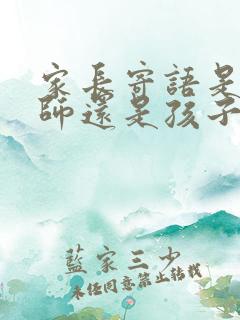 家長寄語是
師還是孩子
藍家三少
未經同意禁止轉載